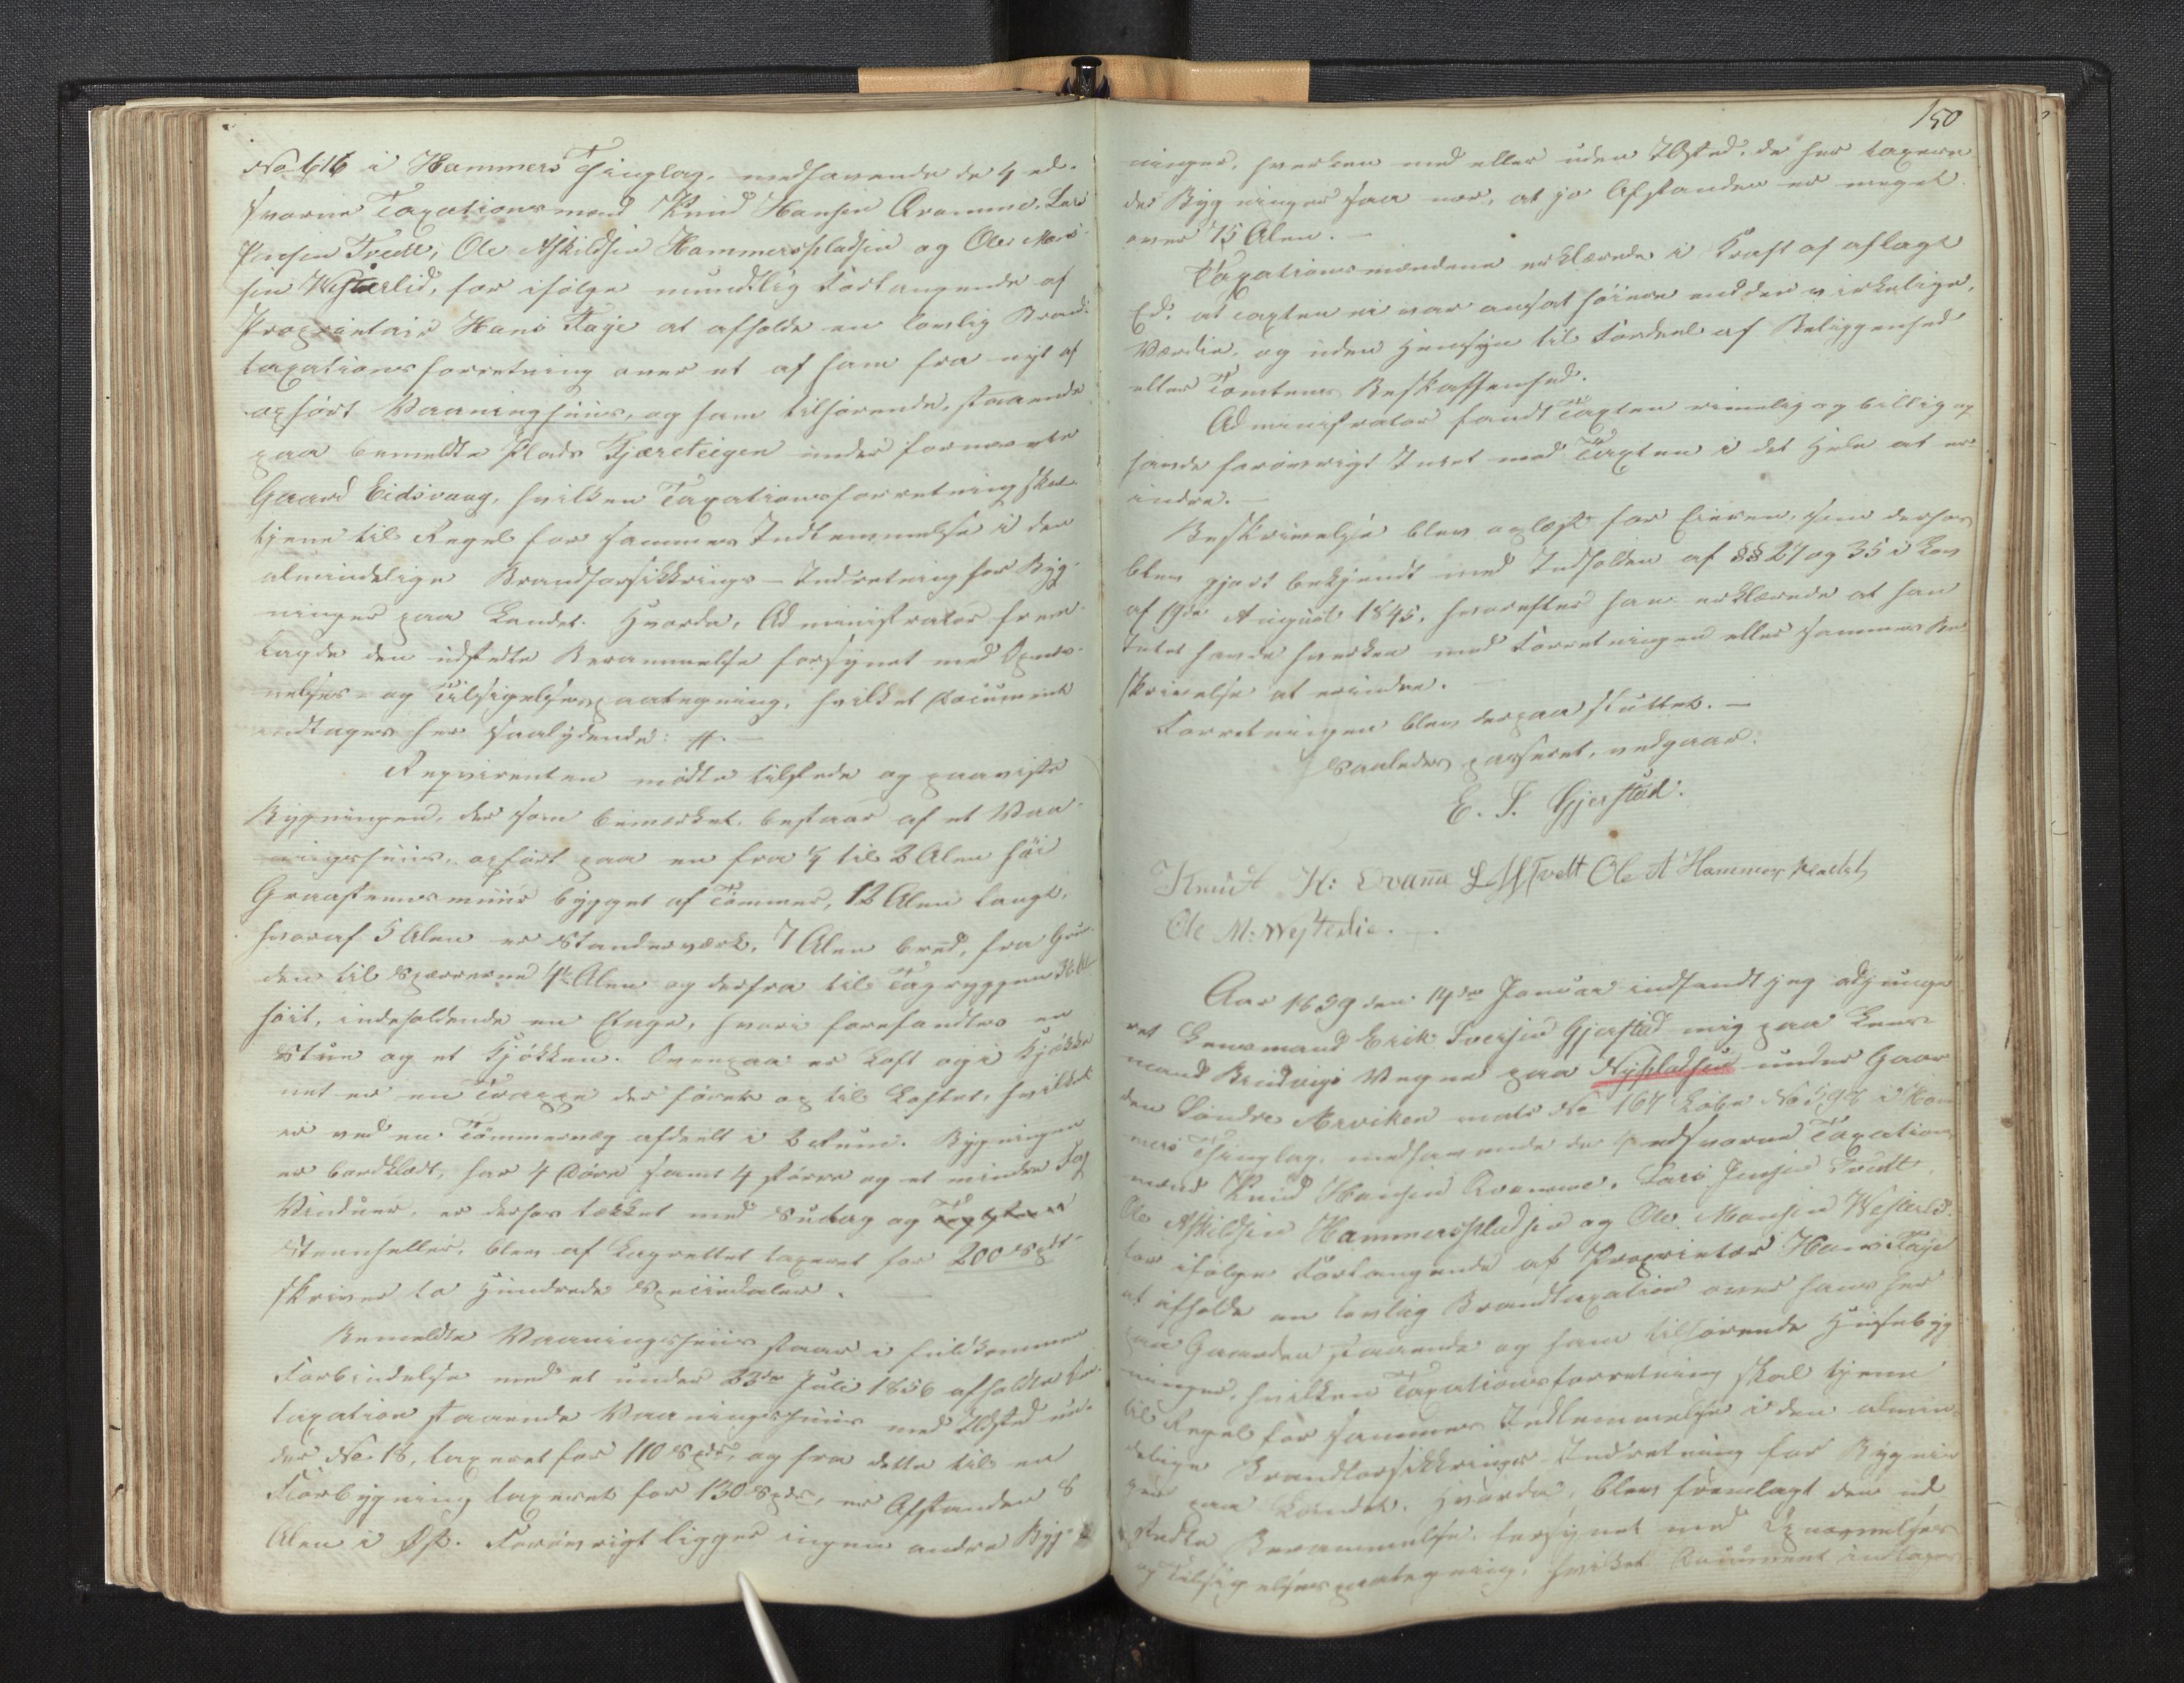 No 616 i Hammers Thinglag, medhavende de 4 ed-
svorne Taxationsmænd Knud Hansen Qvamme, Lars
Jensen Tvedt, Ole Askildsen Hammerspladsen og Ole Mons-
sen Westerlid, for ifølge mundtlig Forlangende af
Proprietair Hans Faye at afholde en lovlig Brand-
taxationsforretning over et af ham fra nyt af
opført Vaaningshuus, og ham tilhørende, staaende
paa bemeldte Plads Kjæreteigen under fornævnte
Gaard Eidsvaag, hvilken Taxationsforretning skal
tjene til Regel for sammes Indlemmelse i den
almindelige Brandforsikkrings-Indretning for Byg-
ninger paa Landet. Hvorda, Administrator frem-
lagde den udstedte Berammelse forsynet med Opnæv-
nelses- og Tilsigelsespaategning, hvilket Document
indtages her saalydende: #.—
Reqvirenten mødte tilstede og paaviste
Bygningen, der som bemærket, bestaar af et Vaa-
ningshuus, opført paa en fra ¼ til 2 Alen høi
Graasteensmuur bygget af Tømmer, 12 Alen langt,
hvoraf 5 Alen er Standerværk, 7 Alen bred, fra Grun-
den til Sperrerne 4½ Alen og derfra til Tagryggen 3½ Al
høit, indeholdende en Etage, hvori forefandtes en
Stue og et Kjøkken. Ovenpaa er Loft og i Kjøkke
net er en Trappe der fører op til Loftet, hvilket
er ved en Tømmervæg afdeelt i 2 Rum. Bygningen
er bordklædt, har 4 Døre samt 4 større og et mindre Fag
Vinduer, er derhos tækket med Sudtag og
Steenheller, blev af Lagrettet taxeret for 200 Spdr
skriver to Hundrede Speciedaler.
Bemeldte Vaaningshuus staar i fuldkommen
Forbindelse med et under 23de Juli 1856 afholdte
taxation staaende Vaaningshuus med Ildsted un-
der No 18, taxeret for 110 Spdr, og fra dette til en
Florbygning taxeret for 130 Spdr, er Afstanden 8
Alen i Øst. Forøvrigt ligger ingen andre Byg-
150
ninger, hverken med eller uden Ildsted, de her taxere
de Bygninger saa nær, at jo Afstanden er meget
over 15 Alen.—
Taxationsmændene erklærede i Kraft af aflagt
Ed, at Taxten ei var ansat høiere end den virkelige
Værdie, og uden Hensyn til Fordeel af Beliggenhed
eller Tomtens Beskaffenhed.
Administrator fandt Taxten rimelig og billig og
havde forøvrigt Intet mod Taxten i det Hele at er-
indre.—
Beskrivelse blev oplæst for Eieren, som derhos
blev gjort bekjendt med Indholdet af §§ 27 og 35 i Lov
af 19de August 1845, hvorefter han erklærede at han
Intet havde hverken mod Forretningen eller sammes Be-
skrivelse at erindre.—
Forretningen blev derpaa sluttet.—
Saaledes passeret, vedgaar.
E. I. Gjerstad.
Knudt H: Qvamme L J Tvedt Ole A Hammerspladsen
Ole M: Westerlie.
Aar 1859 den 14de Januar indfandt jeg adjunge
ret Lensmand Erik Iversen Gjerstad mig paa Lens-
mand Brudvigs Vegne paa Nypladsen under Gaar
den Søndre Arviken matr No 164 Løbe No 598 i Ham
mers Thinglag, medhavende de 4 edsvorne Taxations
mænd Knud Hansen Qvamme, Lars Jensen Tvedt,
Ole Askildsen Hammerspladsen og Ole Monsen Westerlid,
for ifølge Forlangende af Proprietær Hans Faye
at afholde en lovlig Brandtaxation over hans her
paa Gaarden staaende og ham tilhørende Huusebyg
ninger, hvilken Taxationsforretning skal tjene
til Regel for sammes Indlemmelse i den almin-
delige Brandforsikkrings-Indretning for Bygnin
ger paa Landet. Hvorda, blev fremlagt den ud
stedte Berammelse, forsynet med Opnævnelses
og Tilsigelsespaategning, hvilket Document indtages